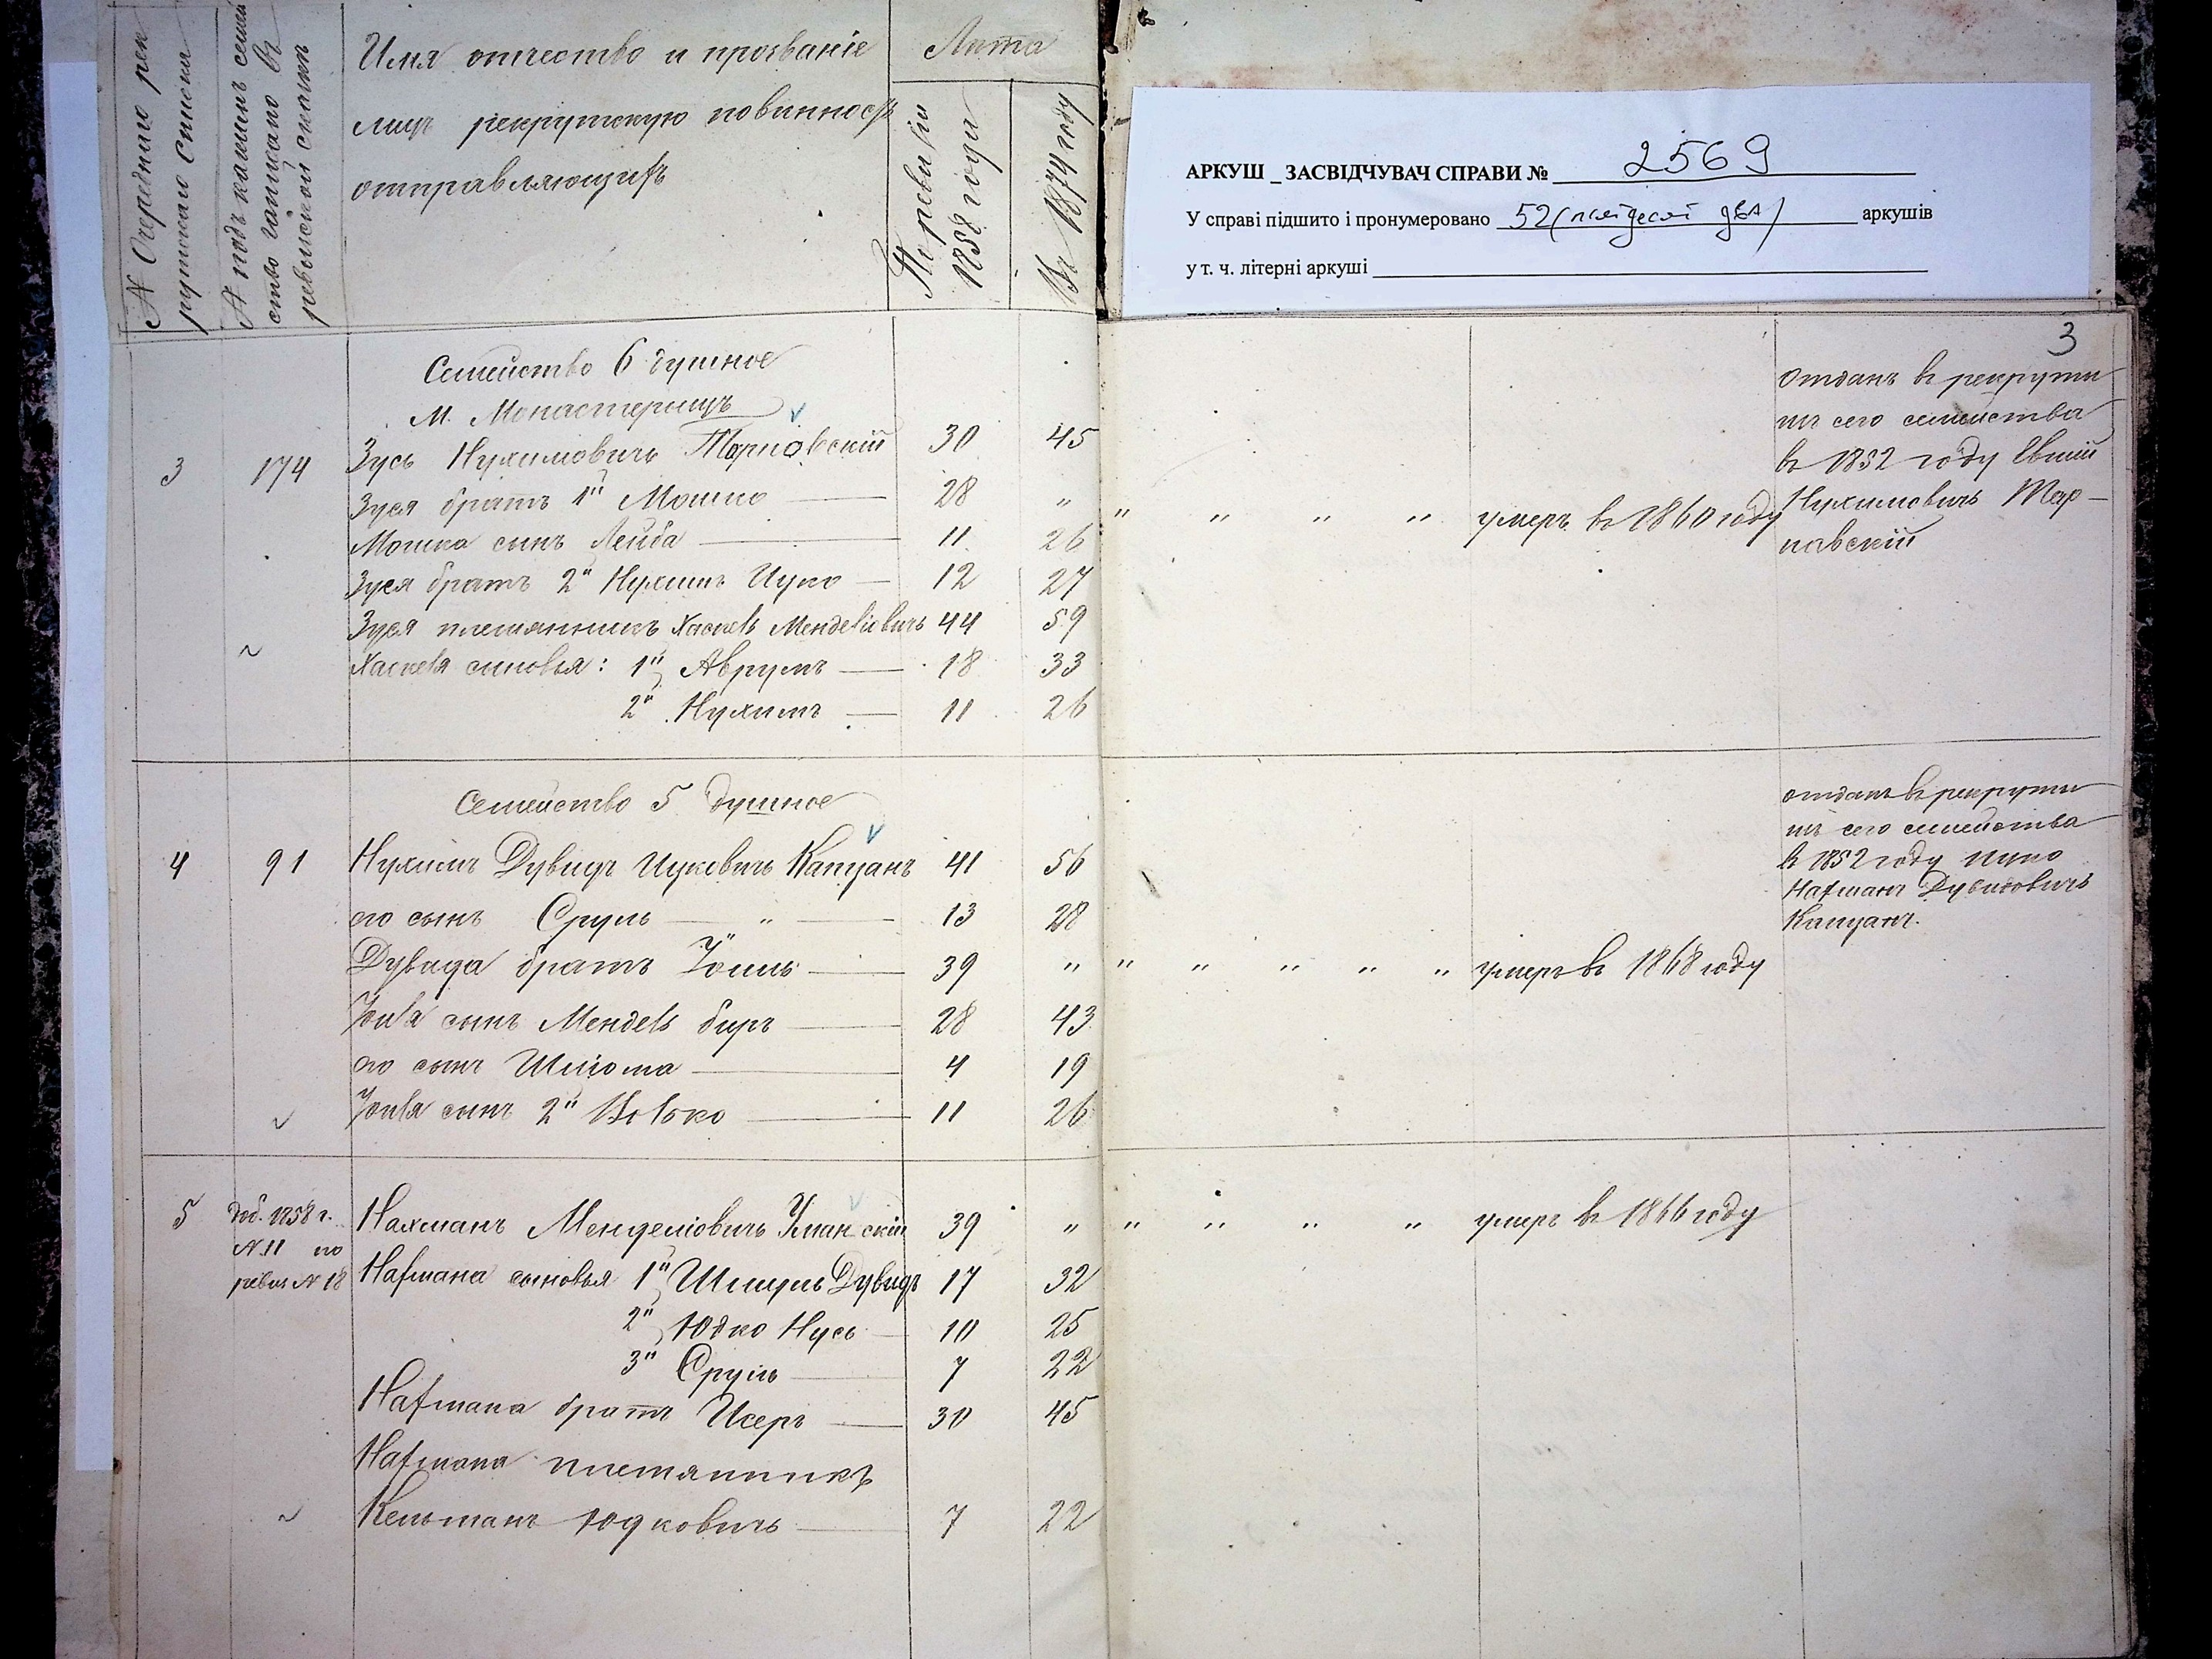 № Очереднаго рек
рутскаго списка
А подъ какимъ семей
ство записано въ
ревизской сказкѣ
Имя отчество и прозваніе
лицъ рекрутскую повинность
отправляющихъ
Лѣта
По ревизіи
1858 года
Въ 1874 году
АРКУШ _ ЗАСВІДЧУВАЧ СПРАВИ № 2569
У справі підшито і пронумеровано 52 (пятдесят два) аркушів
у т. ч. літерні аркуші
3
Семейство 6 душное
М. Монастерищъ
3 174 Зусь Нухимовичъ Тарновскій 30 45
Зуся братъ 1й Мошко 28 " " " " " умеръ въ 1860 году
Мошка сынъ Лейба 11 26
Зуся братъ 2й Нухимъ Ицко 12 27
Зуся племянникъ Хаскель Менделіовичъ 44 59
Хаскеля сыновья: 1й Аврумъ 18 33
2й Нухимъ 11 26
Отданъ въ рекруты
изъ сего семейства
въ 1852 году
Нухимовичъ Тар-
навскій
Семейство 5 душное
4 91 Нухимъ Дувидъ Ицковичъ Капцанъ 41 56
его сынъ Сруль " 13 28
Дувида братъ Іоиль 39 " " " " " " умеръ въ 1868 году
Іоиля сынъ Мендель Биръ 28 43
его сынъ Шлiома 4 19
Іоиля сынъ 2й Волько 11 26
отданъ въ рекруты
изъ сего семейства
въ 1852 году Ицко
Нахманъ Дувидовичъ
Капцанъ.
5 доб. 1858 г. Нахманъ Менделіовичъ Уманскій 39 " " " " " умеръ въ 1866 году
№ 11 по
ревиз № 18 Нахмана сыновья 1й Шмуль Дувидъ 17 32
2й Юдко Нусь 10 25
3й Сруль 7 22
Нахмана братъ Исеръ 30 45
Нахмана племянникъ
Кельманъ Юдковичъ 7 22